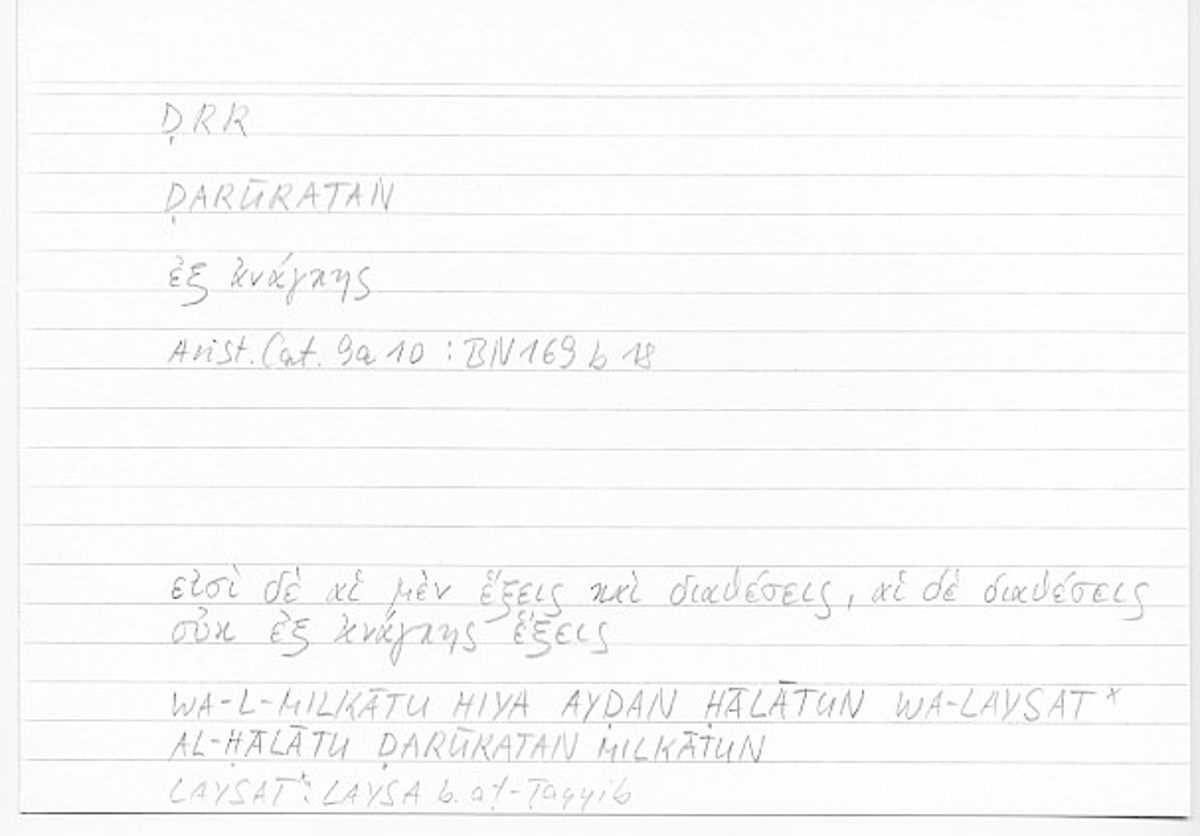 ḌRR
ḌARŪRATAN
ἐξ ἀνάγκης
Arist. Cat. 9a10 : BN 169 b 18
εἰσὶ δὲ αἱ μὲν ἕξεις καὶ διαθέσεις, αἱ δὲ διαθέσεις
οὐκ ἐξ ἀνάγκης ἕξεις
WA-L-MILKĀTU HIYA AYḌAN ḤĀLĀTUN WA-LAYSAT*
AL-ḤĀLĀTU ḌARŪRATAN MILKĀTUN
LAYSAT*: LAYSA b. aṭ-Ṭayyib